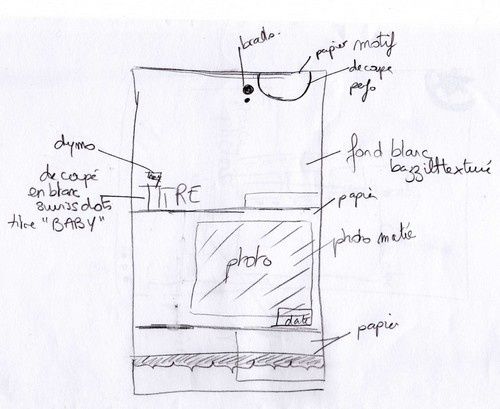 brads.
papier motif
decoupe
perfo
dymo
decoupé
en blanc
sur 3 dots
titre "BABY"
TITRE
fond blanc
bazzill texturé
papier
photo matée
photo
date
papier